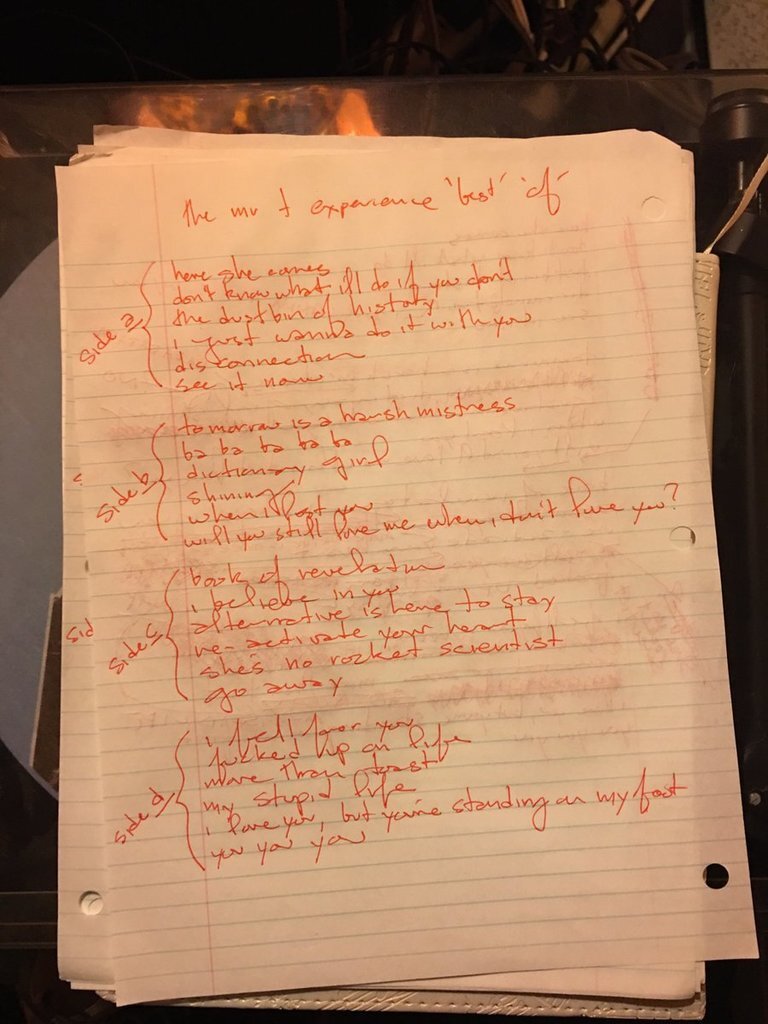 the mr t experience 'best' 'of'
side a
here she comes
don't know what i'll do if you don't
the dustbin of history
i just wanna do it with you
disconnection
see it now
side b
tomorrow is a harsh mistress
ba ba ba ba ba
dictionary girl
shining
when i lost you
will you still love me when i don't love you?
sid
side c
book of revelation
i believe in you
alternative is here to stay
re-activate your heart
she's no rocket scientist
go away
side d
i fell for you
fucked up on life
more than toast
my stupid life
i love you, but you're standing on my foot
you you you